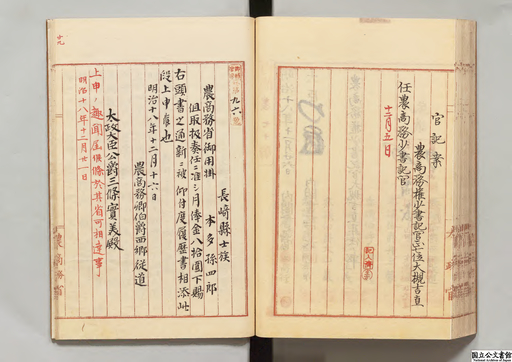 官記案
農商務権少書記官正七位大槻吉直
任農商務少書記官
十二月五日
記入済
九六
長崎縣士族
本多孫四郎
農商務省御用掛
但取扱奏任ニ准シ月俸金八拾圓下賜
右頭書之通新ニ被仰付度履歴書相添此
段上申候也
明治十八年十二月十六日
農商務卿伯爵西郷従道
太政大臣公爵三條實美殿
上申ノ趣聞届候條於其省可相達事
明治十八年十二月廿一日
農商務省
十九
国立公文書館
National Archives of Japan